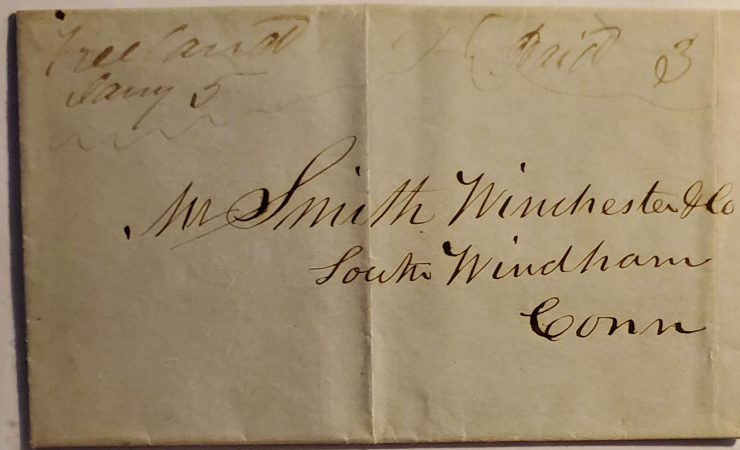 Freeland Paid 3
Jany 5
Mr Smith Winchester & Co
South Windham
Conn